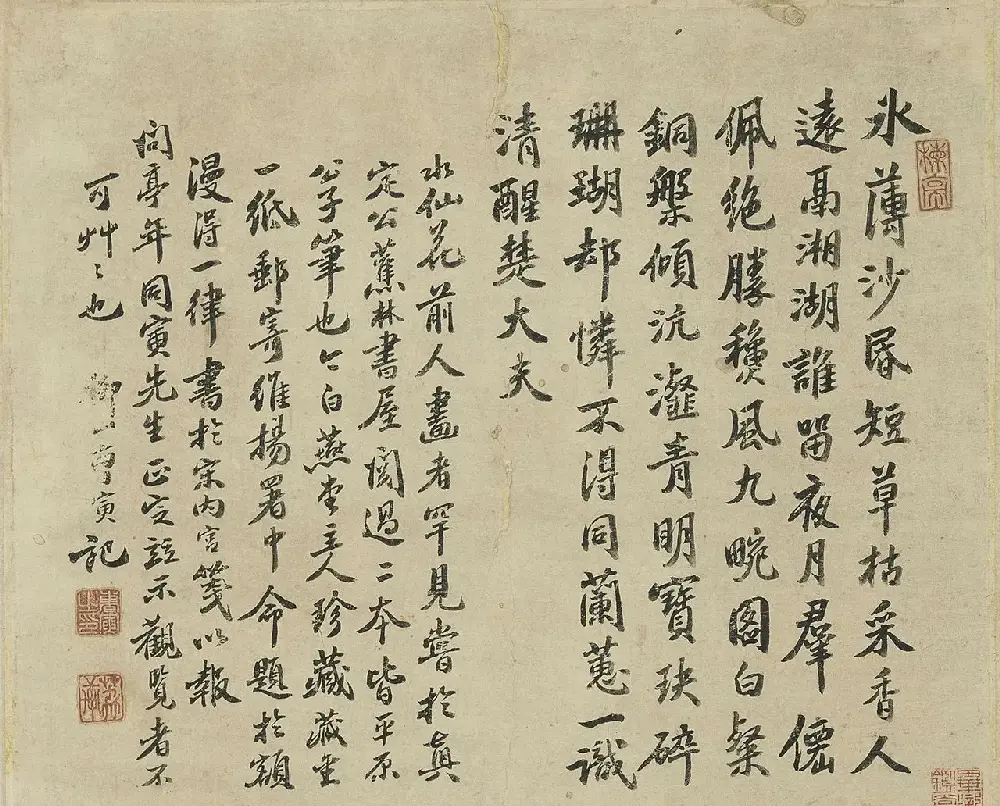 氷薄沙昬短草枯采香人
遠鬲湘湖誰留夜月羣僊
佩絶勝穠風九畹圖白粲
銅槃傾沆瀣青明寶玦碎
珊瑚却憐不得同蘭蕙一識
清醒楚大夫
水仙花前人畫者罕見嘗於真
定公蕉林書屋閲過二本皆平原
公子筆也今白燕堂主人珍藏藏
一紙郵寄維揚署中命題於額
漫得一律書於宋内宫箋以報
問亭年同寅先生正定誌示觀覽者不
可艸々也 柳山曹寅記
楝亭